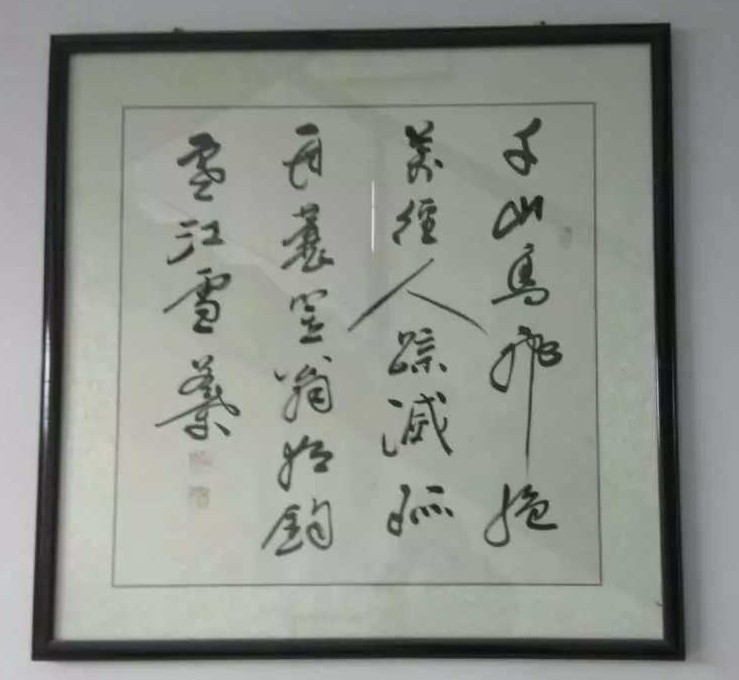 千山鳥飛絕
萬徑人踪滅孤
舟蓑笠翁獨釣
寒江雪